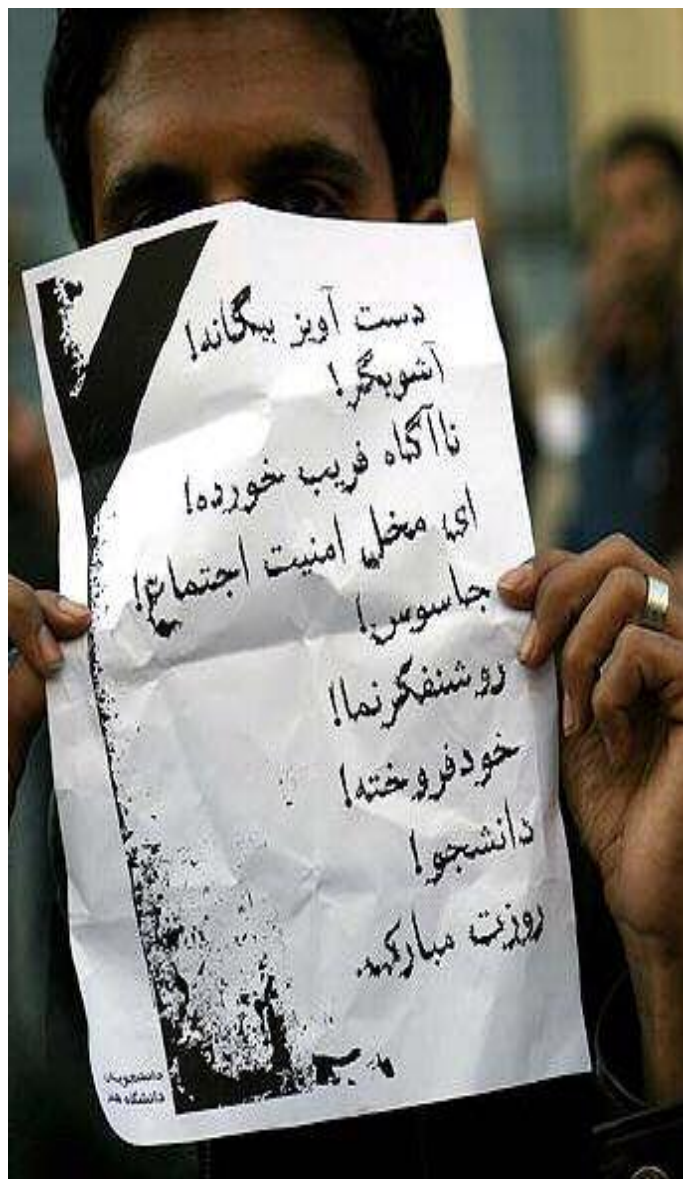 دست آویز بیگانه!
آشوبگر!
ناآگاه فریب خورده!
ای مخل امنیت اجتماع!
جاسوس!
روشنفکرنما!
خودفروخته!
دانشجو!
روزت مبارک.
دانشجویان
دانشگاه هنر